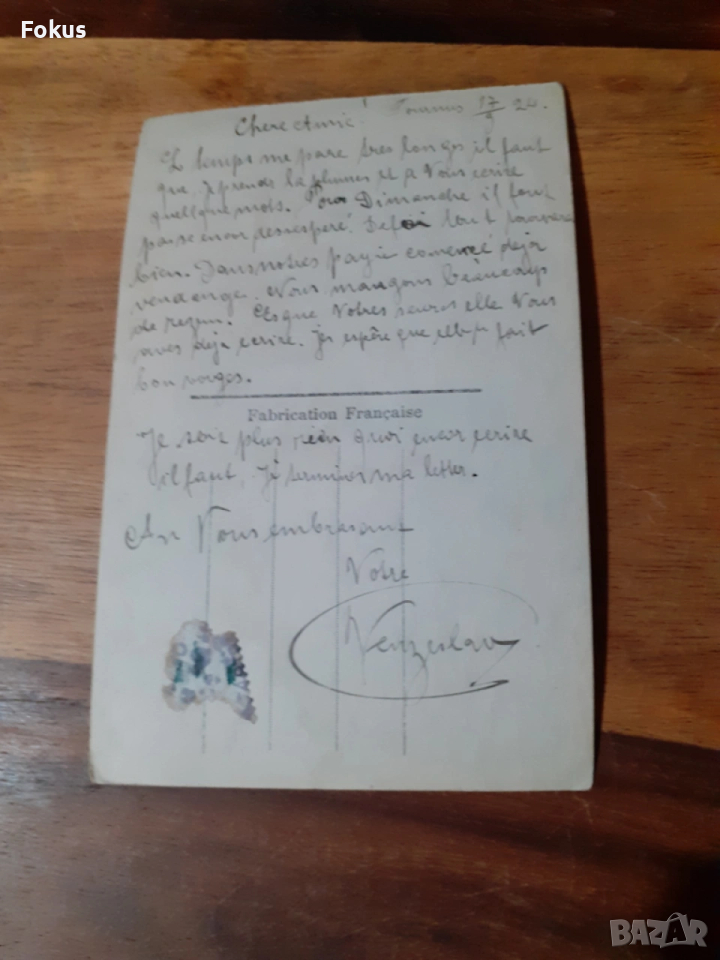 Fokus
Chere Amie! 17/9 24.
temps me pare tres longs il faut
que je prends la plumes et a Vous ecrire
quelque mots. Pour Dimanche il fout
pas encor desespere. tout
bien. Dans notres pay à comencé deja
vendange. Nous mangons beaucoup
de rezen. Es que Votres seurs elle Vous
aves deja ecrire. Jes espère que fait
bon voages.
Fabrication Française
Je sais plus rien quoi encor ecrire
il faut. Je termines ma letter.
Vous embrasant
Votre
Venzeslav
BAZAR